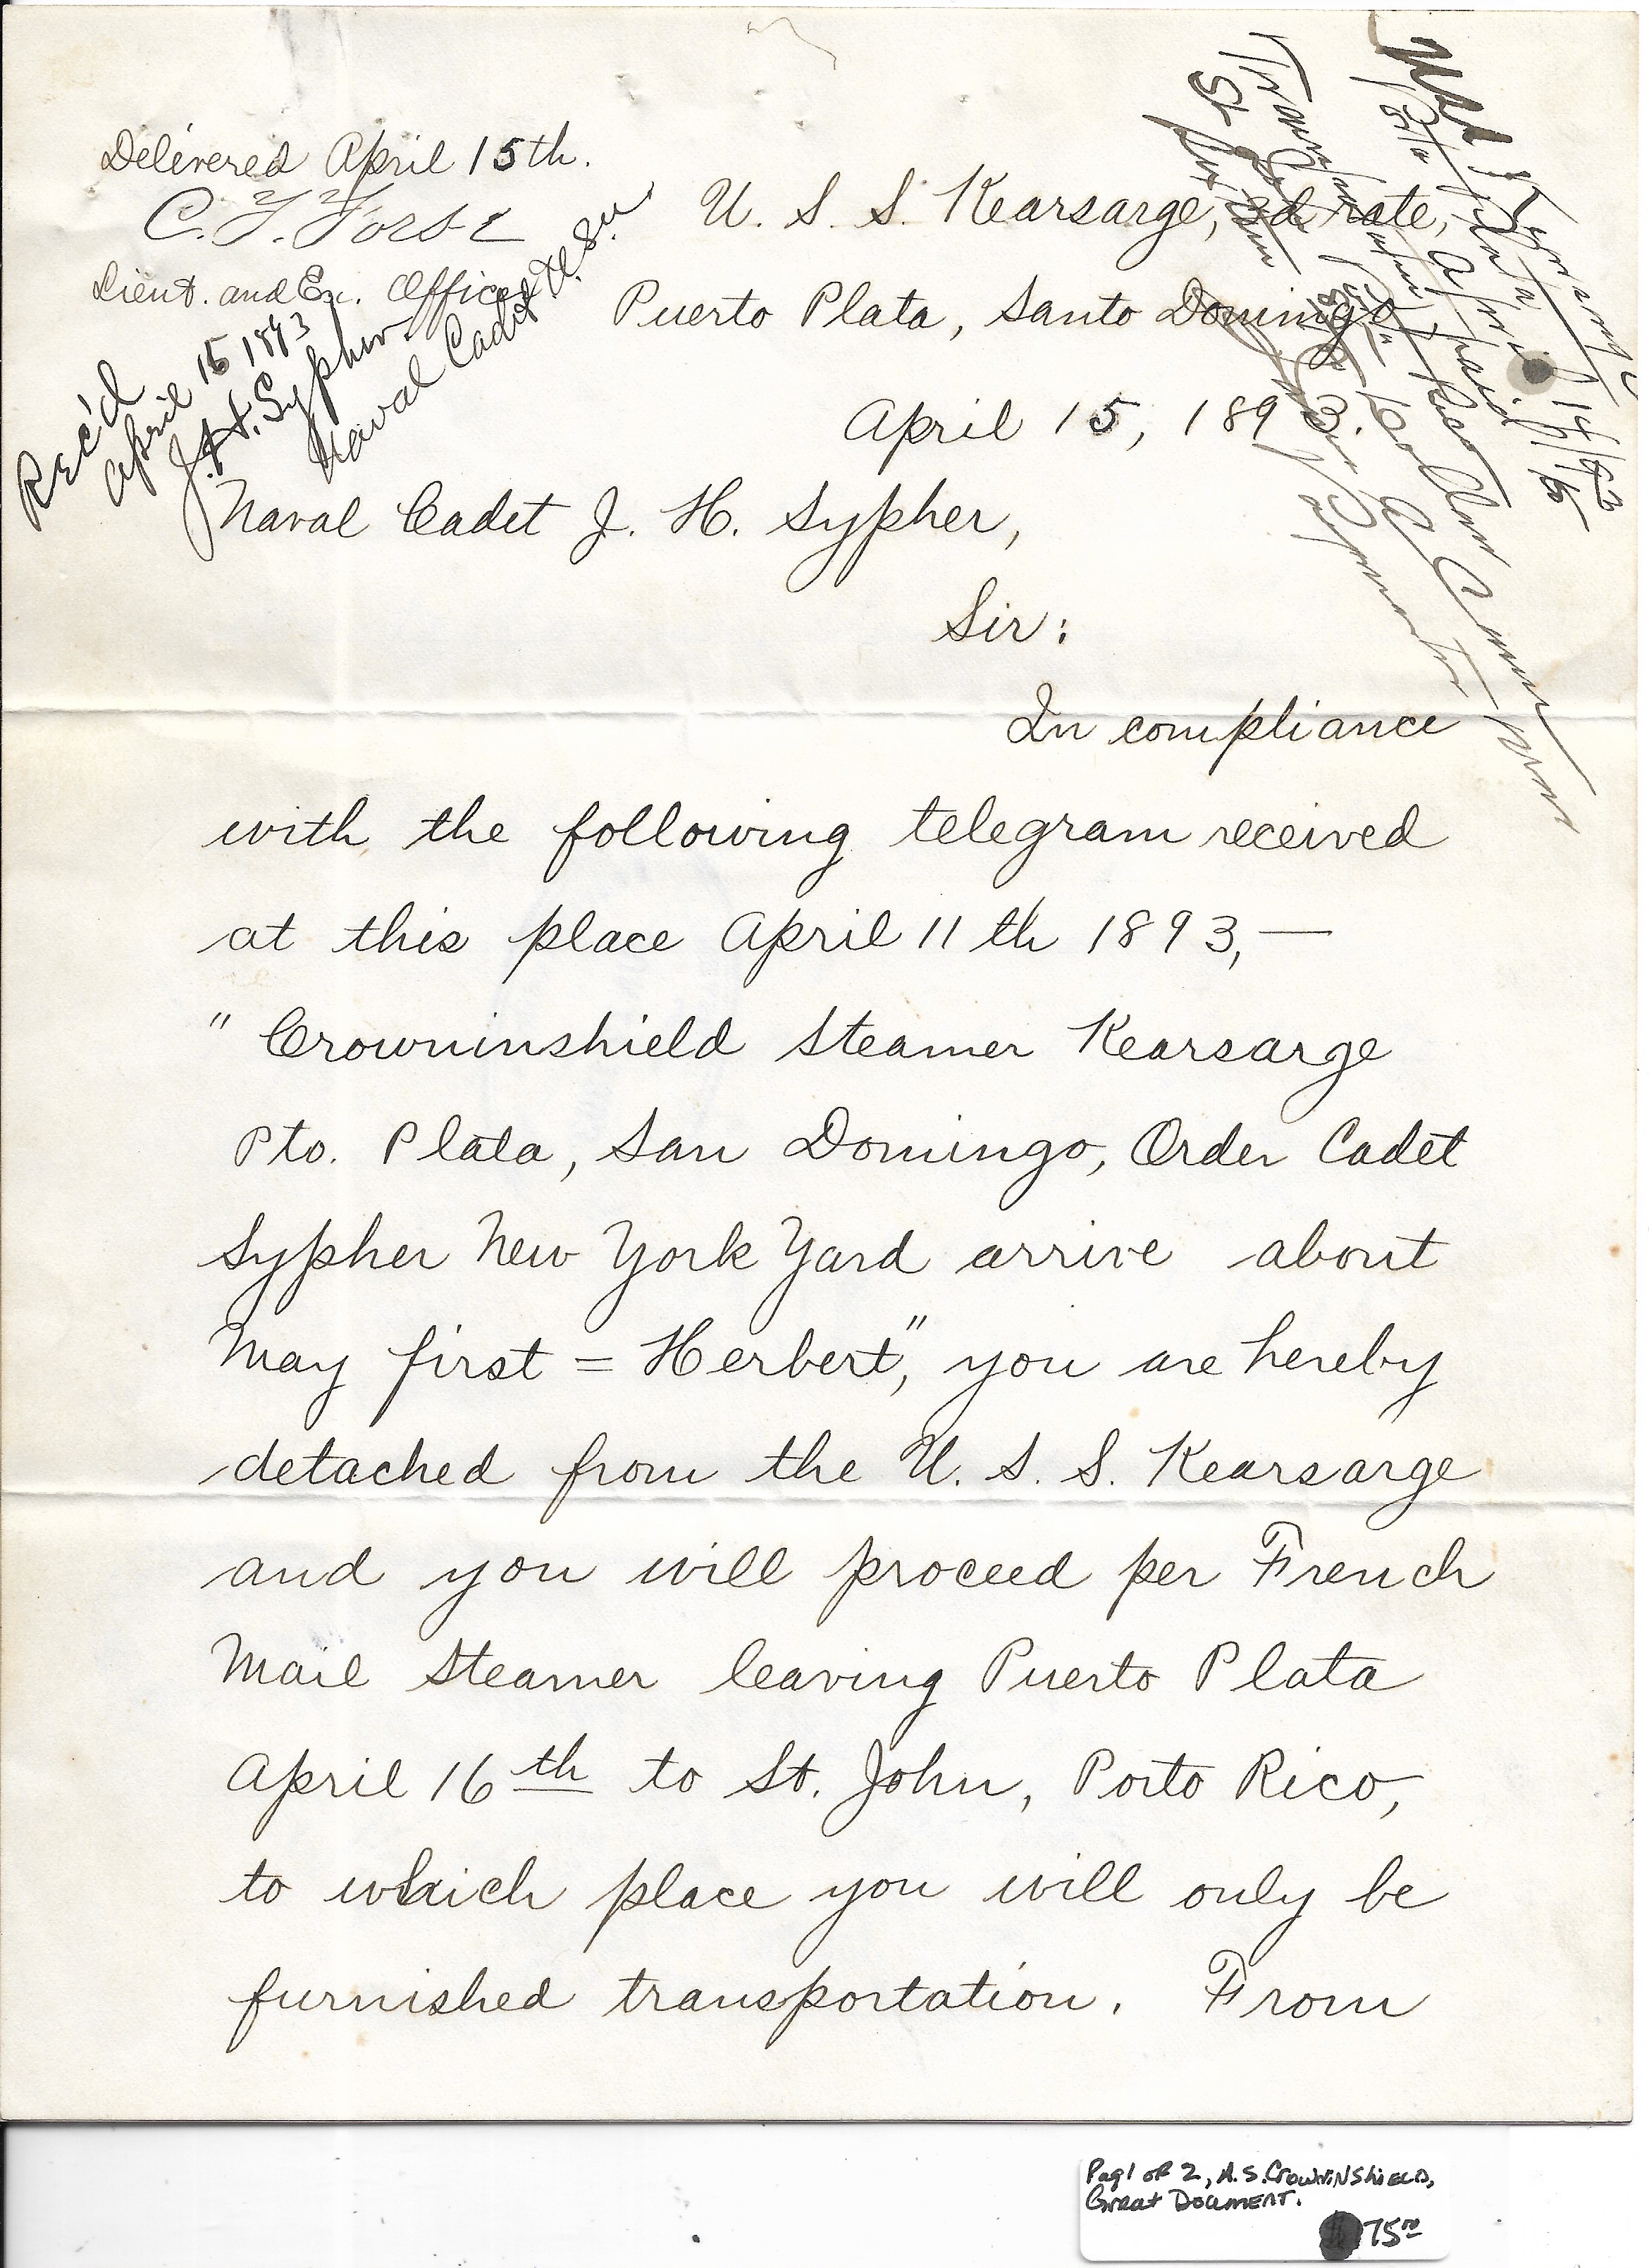 Delivered April 15th.
C. F. Forse
Lieut. and Ex. Officer
Rec'd
April 15 1893
J.H. Sypher.
Naval Cadet U.S.N.
U. S. S. Kearsarge, 3d rate,
Puerto Plata, Santo Domingo,
April 15, 1893.
Naval Cadet J. H. Sypher,
Sir:
In compliance
with the following telegram received
at this place April 11th 1893,—
" Crowninshield Steamer Kearsarge
Pto. Plata, San Domingo, Order Cadet
Sypher New York Yard arrive about
May first = Herbert", you are hereby
detached from the U. S. S. Kearsarge
and you will proceed per French
Mail Steamer leaving Puerto Plata
April 16th to St. John, Porto Rico,
to which place you will only be
furnished transportation. From
Pag 1 of 2, A.S. Crowninshield,
Great Document.
75